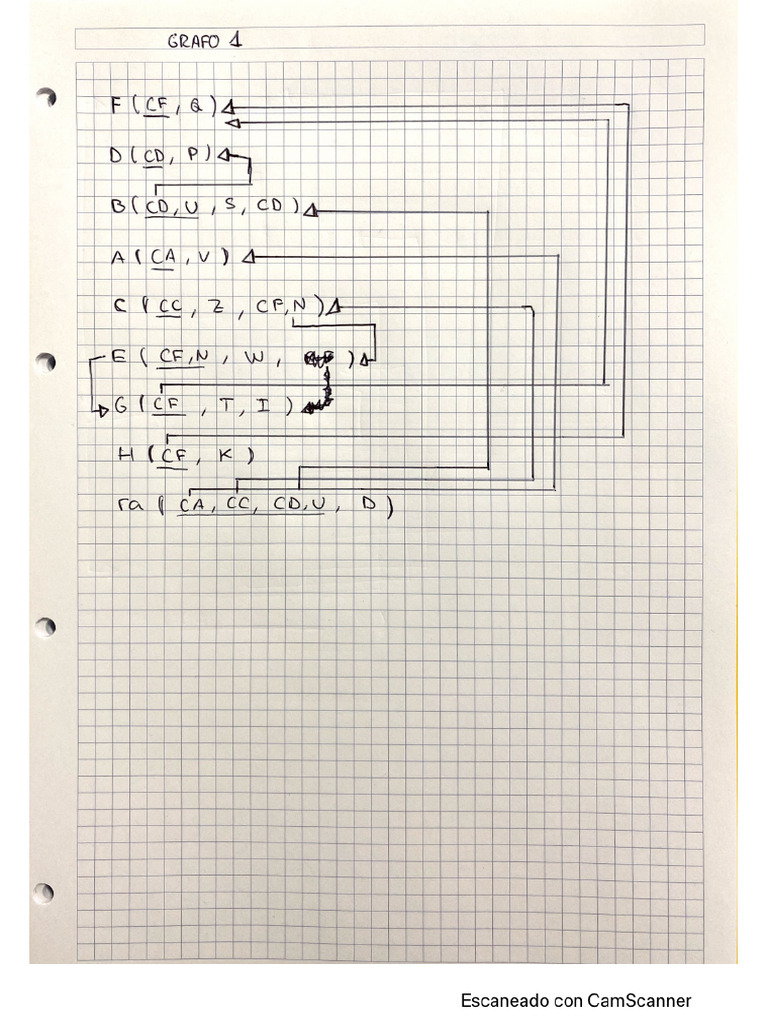 GRAFO 1
F ( CF, Q )
D ( CD, P )
B ( CD, U, S, CD )
A ( CA, V )
C ( CC, Z, CF, N )
E ( CF, N, W, )
G ( CF, T, I )
H ( CF, K )
ra ( CA, CC, CD, U, D )
Escaneado con CamScanner